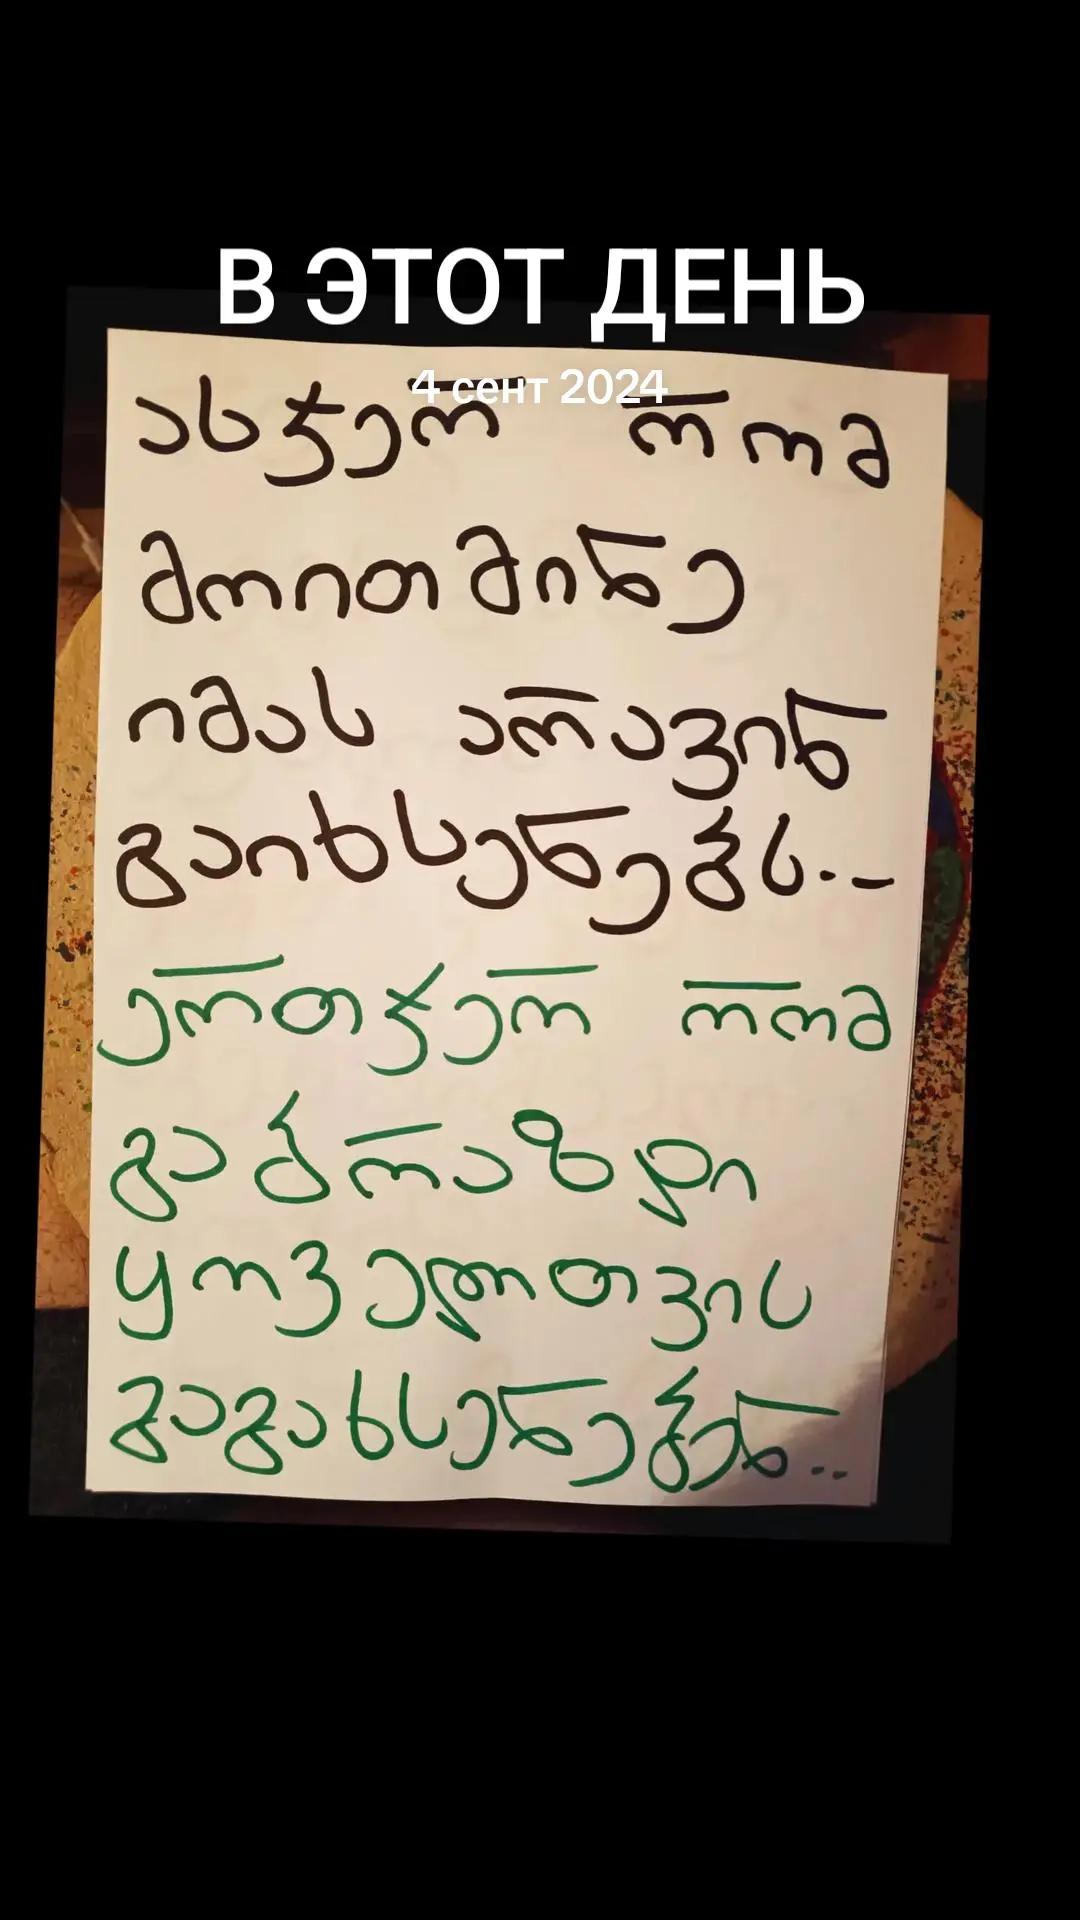 В ЭТОТ ДЕНЬ
4 сент 2024
ასჯერ რომ
მოითმინე
იმას არავინ
გაიხსენებს..-
ერთჯერ რომ
გაბრაზდი
ყოველთვის
გაგახსენებენ..